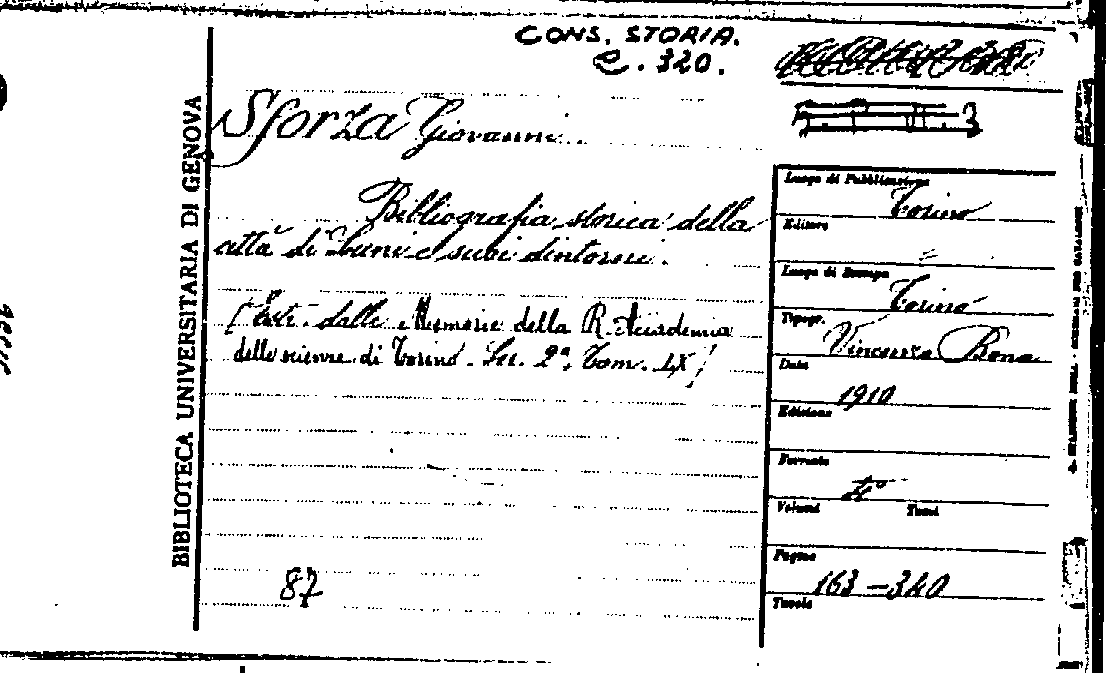 CONS. STORIA.
C. 320.
BIBLIOTECA UNIVERSITARIA DI GENOVA
Sforza Giovanni.
Bibliografia storica della
città di Luni e suoi dintorni.
(Estr. dalle Memorie della R. Accademia
delle scienze di Torino. Ser. 2ª, Tom. LX)
87
Luogo di Pubblicazione
Torino
Editore
=
Luogo di Stampa
Torino
Tipogr.
Vincenzo Bona
Data
1910
Edizione
Formato
4°
Volumi Tomi
Pagine
163-340
Tavole